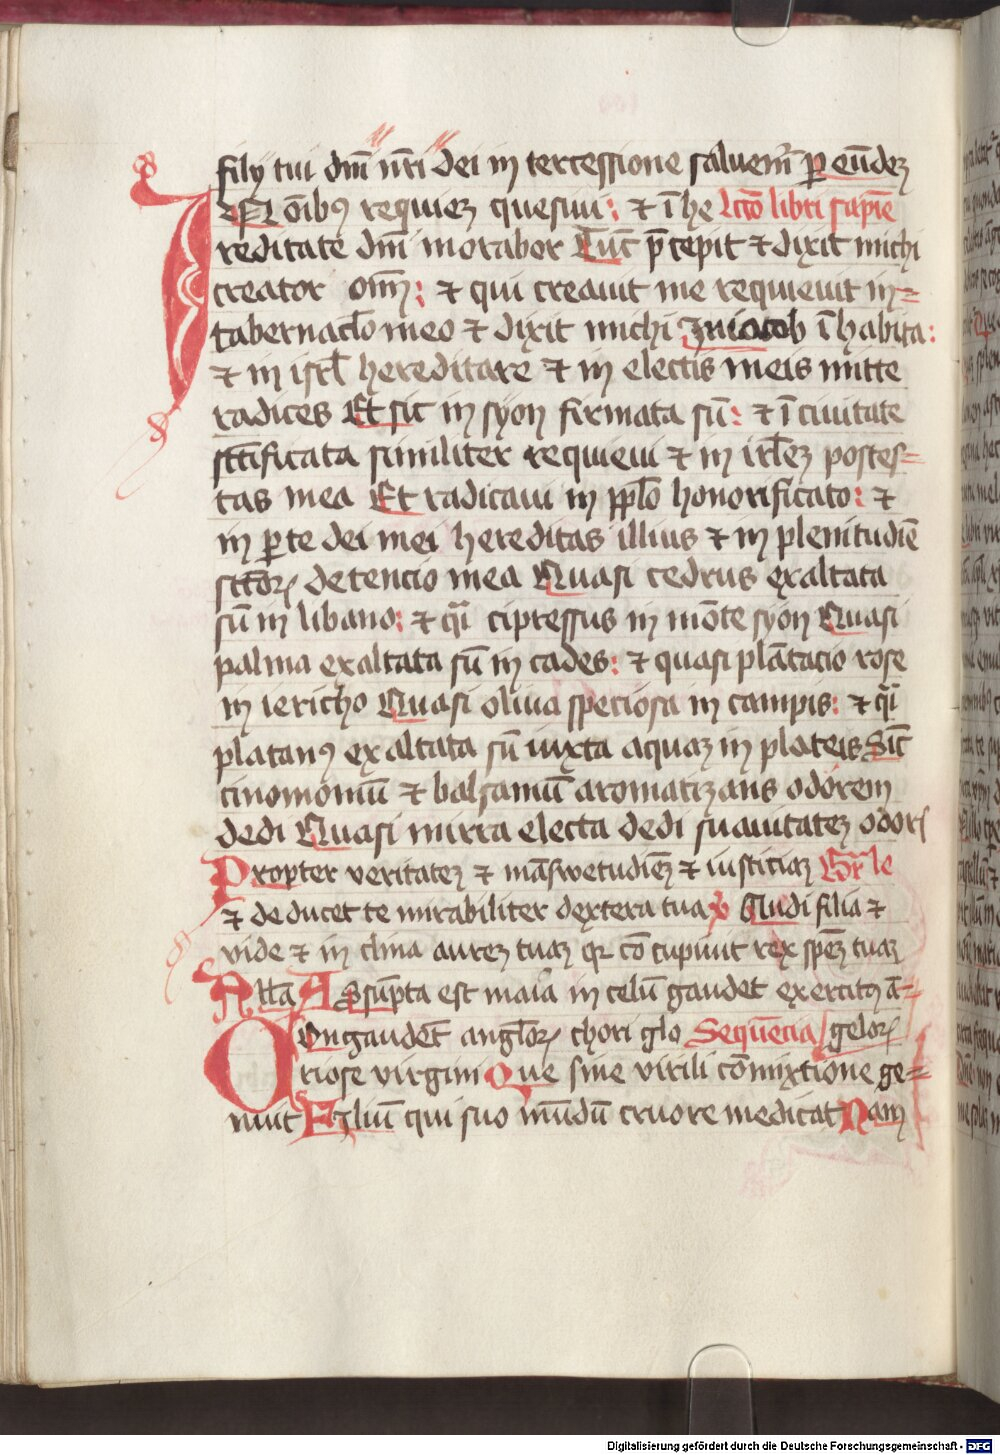 filij tui dn̄i nr̄i dei in tercessione saluem̄ ꝑ eūdeꝫ
IN om̄ibꝰ requieꝫ quesiui: ⁊ ī he Lcc̄o libri sapiē
reditate dn̄i morabor Tūc p̄cepit ⁊ dixit michi
creator om̄: ⁊ qui creauit me requieuit in=
tabernacl̄o meo ⁊ dixit michi In iacob īhabita:
⁊ in isrl̄ hereditare ⁊ in electis meis mitte
radices Et sic in syon firmata sū: ⁊ ī ciuitate
sctīficata similiter requieui ⁊ in irl̄eꝫ potes=
tas mea Et radicaui in ppl̄o honorificato: ⁊
in ꝑte dei mei hereditas illius ⁊ in plenitudīe
sctōꝝ detencio mea Quasi cedrus exaltata
sū in libano: ⁊ qͣi cipressus in mōte syon Quasi
palma exaltata sū in cades: ⁊ quasi plātacio rose
in iericho Quasi oliua speciosa in campis: ⁊ qͣi
platanꝰ exaltata sū iuxta aquaꝫ in plateis Sic̄
cinomomū ⁊ balsamū aromatizans odorem
dedi Quasi mirra electa dedi suauitateꝫ odorꝭ
Propter veritateꝫ ⁊ māswetudīeꝫ ⁊ iusticiaꝫ Gͬle
⁊ deducet te mirabiliter dextera tua ℣ Audi filia ⁊
vide ⁊ in clina aureꝫ tuaꝫ qꝛ cō cupiuit rex speꝫ tuaꝫ
Allā Assūpta est maīa in celū gaudet exercitꝰ ā=
Congaudēt anglōꝝ chori glo Sequēcia geloꝝ
riose virgini Que sine virili cōmixtione ge=
nuit Filiū qui suo mūdū cruore medicat Nam